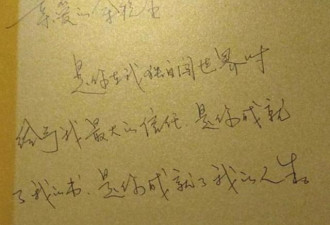 亲爱的
是你在我独自闯世界时
给予我最大的信任.是你成就
了我的书.是你成就了我的人生